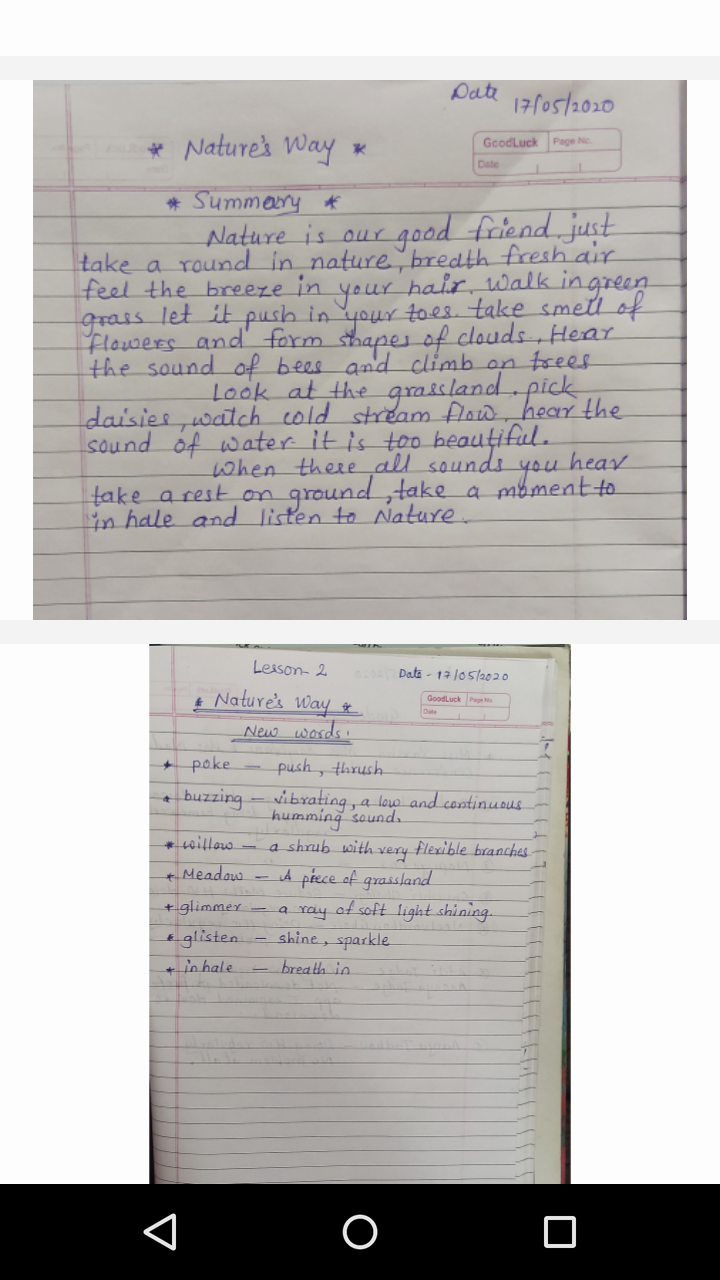 Date 17/05/2020
* Nature's Way *
GoodLuck Page No.
Date
* Summary *
Nature is our good friend, just
take a round in nature, breath fresh air
feel the breeze in your hair. Walk in green
grass let it push in your toes. take smell of
flowers and form shapes of clouds, Hear
the sound of bees and climb on trees
Look at the grassland, pick
daisies, watch cold stream flow, hear the
sound of water it is too beautiful.
When these all sounds you hear
take a rest on ground, take a moment to
inhale and listen to Nature.
Lesson-2 Date - 17/05/2020
* Nature's Way *
GoodLuck Page No.
Date
New words:
* poke — push, thrush
* buzzing — vibrating, a low and continuous
humming sound.
* willow — a shrub with very flexible branches
* Meadow — A piece of grassland
* glimmer — a ray of soft light shining.
* glisten — shine, sparkle
* inhale — breath in